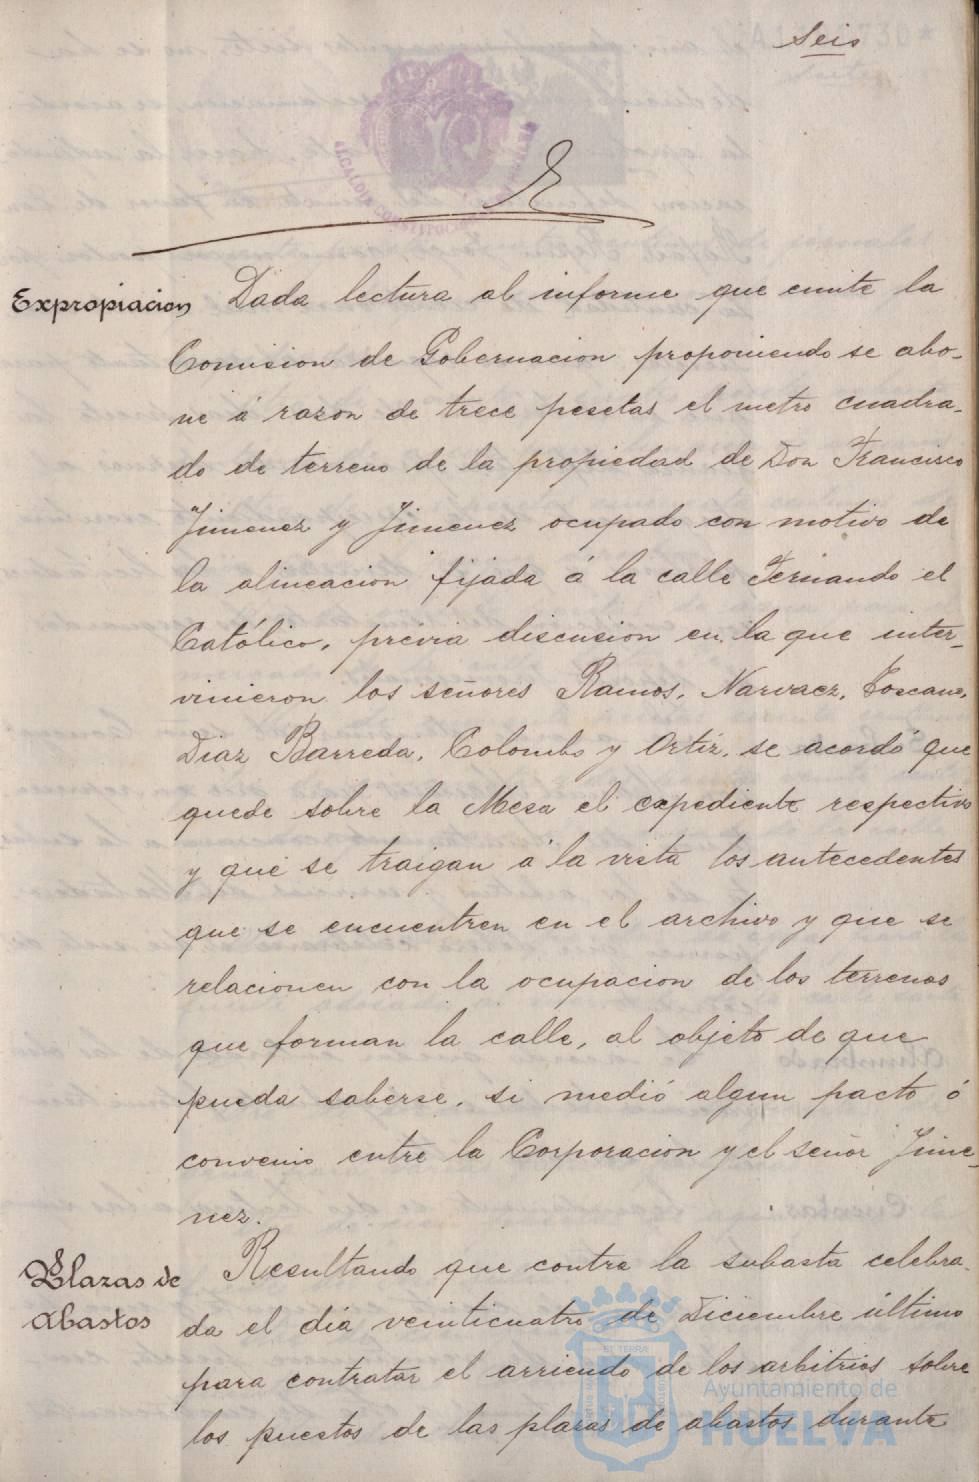 Seis
ALCALDIA CONSTITUCIONAL
Expropiacion
Dada lectura al informe que emite la
Comision de Gobernacion proponiendo se abo-
ne á razon de trece pesetas el metro cuadra-
do de terreno de la propiedad de Don Francisco
Jimenez y Jimenez ocupado con motivo de
la alineacion fijada á la calle Fernando el
Católico, prévia discusion en la que inter-
vinieron los señores Ramos, Narvaez, Toscano,
Diaz Barreda, Colombo y Ortiz, se acordó que
quede sobre la Mesa el expediente respectivo
y que se traigan á la vista los antecedentes
que se encuentren en el archivo y que se
relacionen con la ocupacion de los terrenos
que forman la calle, al objeto de que
pueda saberse, si medió algun pacto ó
convenio entre la Corporacion y el señor Jime-
nez.
Plazas de
Abastos
Resultando que contra la subasta celebra-
da el dia veinticuatro de Diciembre último
para contratar el arriendo de los arbitrios sobre
los puestos de las plazas de abastos durante
Ayuntamiento de
HUELVA